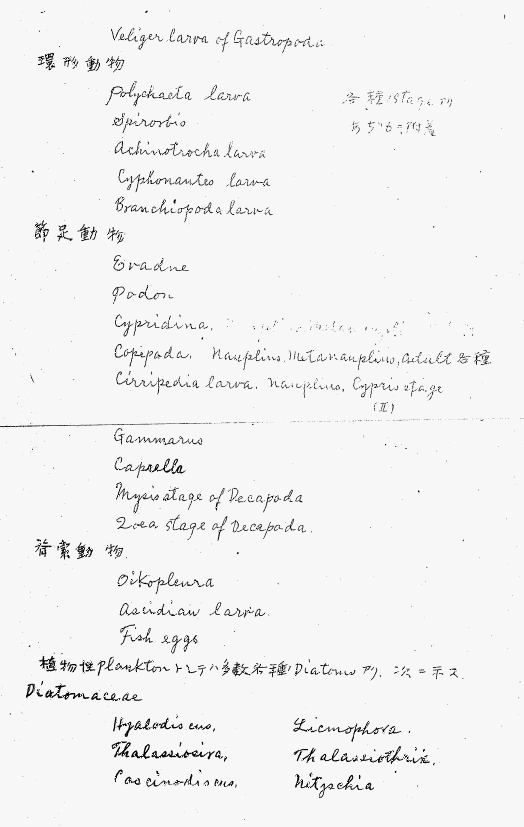 Veliger larva of Gastropoda
環形動物
Polychaeta larva 各種 Stage アリ
Spirorbis 附着
Achinotrocha larva
Cyphonautes larva
Branchiopoda larva
節足動物
Evadne
Podon
Cypridina.
Copepoda. Nauplius, Metanauplius, adult 各種
Cirripedia larva. Nauplius, Cypris stage
(II)
Gammarus
Caprella
Mysis stage of Decapoda
Zoea stage of Decapoda.
脊索動物.
Oikopleura
Ascidian larva.
Fish eggs
植物性 Plankton トシテハ多数各種 Diatoms アリ. 次ニ示ス.
Diatomaceae
Hyalodiscus, Licmophora.
Thalassiosira, Thalassiothrix.
Coscinodiscus, Nitzschia